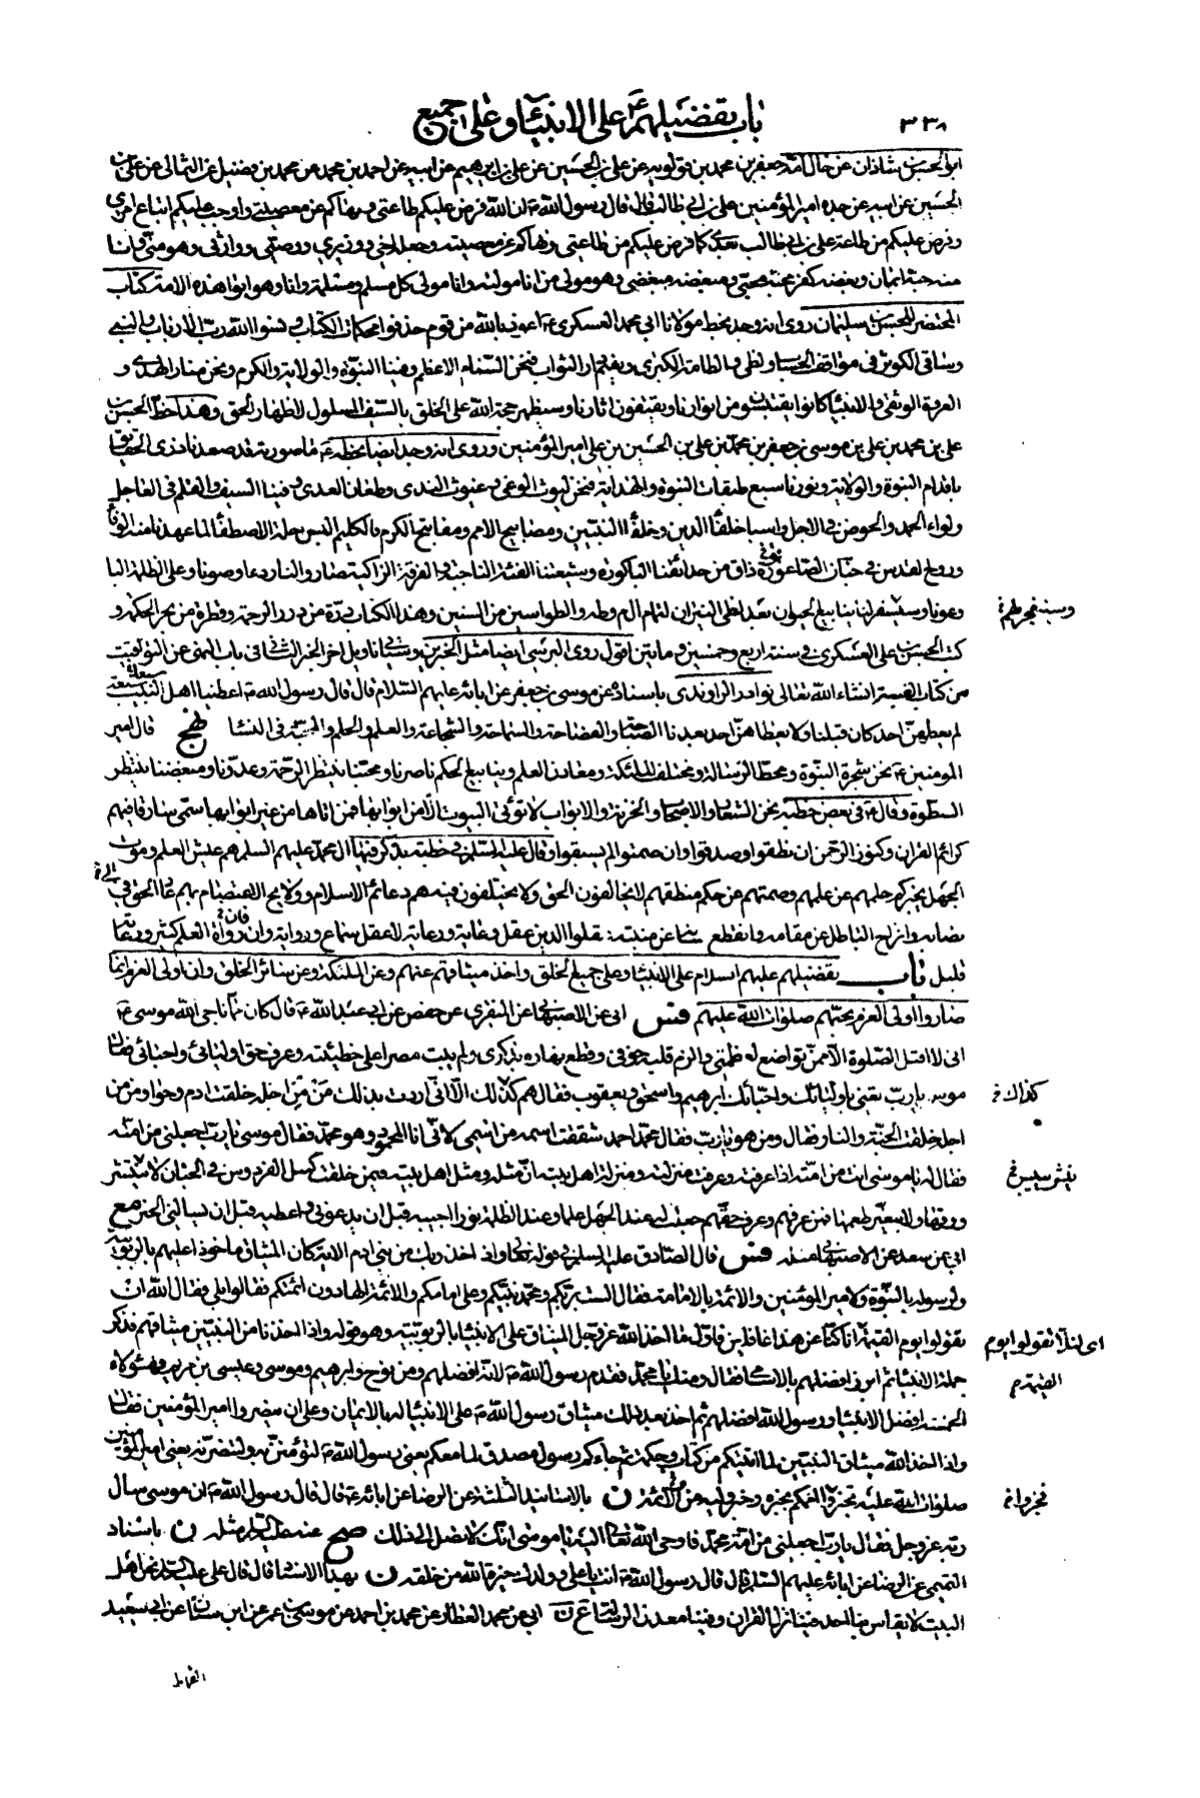 باب تفضيلهم ع على الانبياء وعلى جميع
٣٣٨
ابى الحسن بن شاذان عن خال امه جعفر بن محمد بن قولويه عن علي بن الحسين عن علي بن ابراهيم عن ابيه عن احمد بن محمد عن محمد بن فضيل عن الثمالي عن علي بن
الحسين عن ابيه عن جده امير المؤمنين علي بن ابي طالب قال قال رسول الله ص ان الله فرض عليكم طاعتي ونهاكم عن معصيتي واوجب عليكم اتباع امري
وفرض عليكم من طاعة علي بن ابي طالب بعدي كما فرض عليكم من طاعتي ونهاكم عن معصيته وجعله اخي ووزيري ووصيي ووارثي وهو مني وانا
منه حبه ايمان وبغضه كفر محبه محبي ومبغضه مبغضي وهو مولى من انا مولاه وانا مولى كل مسلم ومسلمة وانا وهو ابوا هذه الامة كتاب
المختصر للحسن بن سليمان روى انه وجد بخط مولانا ابي محمد العسكري ع اعوذ بالله من قوم حذفوا محكمات الكتاب ونسوا الله رب الارباب والنبي
وساقي الكوثر في مواقف الحساب ولظى والطامة الكبرى ونعيم دار الثواب فنحن السنام الاعظم وفينا النبوة والولاية والكرم ونحن منار الهدى و
العروة الوثقى والانبياء كانوا يقتبسون من انوارنا ويقتفون اثارنا وسيظهر حجة الله على الخلق بالسيف المسلول لاظهار الحق وهذا خط الحسن بن
علي بن محمد بن علي بن موسى بن جعفر بن محمد بن علي بن الحسين بن علي امير المؤمنين وروى انه وجد ايضا بخطه ع ما صورته قد صعدنا ذرى الحقايق
باقدام النبوة والولاية ونورنا سبع طبقات النبوة والهداية فنحن ليوث الوغى وغيوث الندى وطعان العدى وفينا السيف والقلم في العاجل
ولواء الحمد والحوض في الاجل واسباطنا خلفاء الدين وخلفاء النبيين ومصابيح الامم ومفاتيح الكرم فالكليم البس حلة الاصطفاء لما عهدنا منه الوفاء
وروح القدس في جنان الصاغورة ذاق من حدائقنا الباكورة وشيعتنا الفئة الناجية والفرقة الزاكية صاروا لنا ردءا وصونا وعلى الظلمة البا
وعونا وسينفجر لهم ينابيع الحيوان بعد لظى النيران لتمام الم وطه والطواسين من السنين وهذا الكتاب درة من درر الرحمة وقطرة من بحر الحكمة و
كتب الحسن بن علي العسكري في سنة اربع وخمسين ومأتين اقول روى البرسي ايضا مثل الخبرين وسيأتي تاويل اخر الخبر الثاني في باب النهي عن التوقيت
من كتاب الغيبة انشاء الله تعالى نوادر الراوندي باسناده عن موسى بن جعفر عن ابائه عليهم السلام قال قال رسول الله ص اعطينا اهل البيت سبعة
لم يعطهن احد كان قبلنا ولا يعطاهن احد بعدنا الصباحة والفصاحة والسماحة والشجاعة والعلم والحلم والمحبة في النساء نهج قال امير
المؤمنين ع نحن شجرة النبوة ومحط الرسالة ومختلف الملائكة ومعادن العلم وينابيع الحكم ناصرنا ومحبنا ينتظر الرحمة وعدونا ومبغضنا ينتظر
السطوة وقال ع في بعض خطبه نحن الشعار والاصحاب والخزنة والابواب لا تؤتى البيوت الا من ابوابها فمن اتاها من غير ابوابها سمي سارقا فيهم
كرائم القران وكنوز الرحمن ان نطقوا صدقوا وان صمتوا لم يسبقوا وقال عليه السلم في خطبة يذكر فيها ال محمد عليهم السلم هم عيش العلم وموت
الجهل يخبركم حلمهم عن علمهم وصمتهم عن حكم منطقهم لا يخالفون الحق ولا يختلفون فيه هم دعائم الاسلام وولايج الاعتصام بهم عاد الحق في
نصابه وانزاح الباطل عن مقامه وانقطع لسانه عن منبته عقلوا الدين عقل وعاية ورعاية لا عقل سماع ورواية وان رواة العلم كثير ورعاته
قليل باب تفضيلهم عليهم السلام على الانبياء وعلى جميع الخلق واخذ ميثاقهم عنهم وعن الملئكة وعن سائر الخلق وان اولى العزم انما
صاروا اولى العزم بحبهم صلوات الله عليهم فس ابي عن الاصبهاني عن المنقري عن حفص عن ابي عبد الله ع قال كان مما ناجى الله موسى ع
اني لا اقبل الصلوة الا ممن تواضع لعظمتي والزم قلبه خوفي وقطع نهاره بذكري ولم يبت مصرا على خطيئته وعرف حق اوليائي واحبائي فقال
موسى يا رب تعني باوليائك واحبائك ابرهيم واسحق ويعقوب فقال هم كذلك الا اني اردت بذلك من من اجله خلقت ادم وحوا ومن من
اجله خلقت الجنة والنار فقال ومن هو يا رب فقال محمد احمد شققت اسمه من اسمي لاني انا المحمود وهو محمد فقال موسى يا رب اجعلني من امته
فقال له يا موسى انت من امته اذا عرفته وعرفت منزلته ومنزلة اهل بيته ان مثله ومثل اهل بيته فيمن خلقت كمثل الفردوس في الجنان لا ينتشر
ورقها ولا يتغير طعمها فمن عرفهم وعرف حقهم جعلت له عند الجهل علما وعند الظلمة نورا اجيبه قبل ان يدعوني واعطيه قبل ان يسالني الخبر مع
ابي عن سعد عن الاصبهاني مثله فس قال الصادق عليه السلم في قوله تعالى واذ اخذ ربك من بني ادم الاية كان الميثاق ماخوذا عليهم بالربوبية
ولرسوله بالنبوة ولامير المؤمنين والائمة بالامامة فقال الست بربكم ومحمد نبيكم وعلي امامكم والائمة الهادون ائمتكم فقالوا بلى فقال الله ان
تقولوا يوم القيمة انا كنا عن هذا غافلين فاول ما اخذ الله عز وجل الميثاق على الانبياء بالربوبية وهو قوله واذ اخذنا من النبيين ميثاقهم فذكر
جملة الانبياء ثم ابرز افضلهم بالاسامي فقال ومنك يا محمد فقدم رسول الله ص لانه افضلهم ومن نوح وابرهيم وموسى وعيسى بن مريم فهؤلاء
الخمسة افضل الانبياء ورسول الله افضلهم ثم اخذ بعد ذلك ميثاق رسول الله ص على الانبياء له بالايمان وعلى ان ينصروا امير المؤمنين فقال
واذ اخذ الله ميثاق النبيين لما اتيتكم من كتاب وحكمة ثم جاءكم رسول مصدق لما معكم يعني رسول الله ص لتؤمنن به ولتنصرنه يعني امير المؤمنين
صلوات الله عليه تخبروا اممكم بخبره وخبر وليه من الائمة ن بالاسانيد الثلثة عن الرضا عن ابائه ع قال قال رسول الله ص ان موسى سال
ربه عز وجل فقال يا رب اجعلني من امة محمد فاوحى الله تعالى اليه يا موسى انك لا تصل الى ذلك صح عنه عليه السلم مثله ن باسناد
التميمي عن الرضا عن ابائه عليهم السلم قال قال رسول الله ص انت يا علي وولدك خيرة الله من خلقه ن بهذا الاسناد قال قال علي عليه السلم نحن اهل
البيت لا يقاس بنا احد فينا نزل القران وفينا معدن الرسالة ن ابي عن محمد العطار عن محمد بن احمد عن موسى بن عمر عن ابن سنان عن ابي سعيد
كذلك خ
اى لئلا تقولوا يوم
القيمة م
القماط